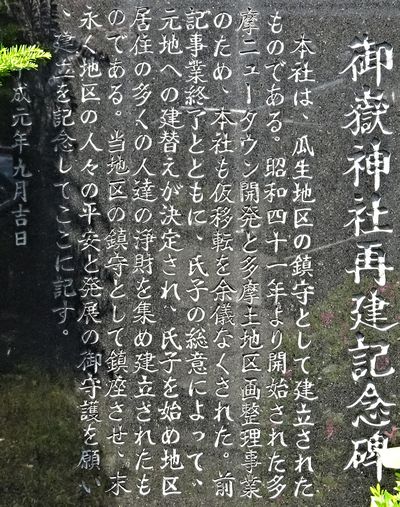 御嶽神社再建記念碑
本社は、瓜生地区の鎮守として建立された
ものである。昭和四十一年より開始された多
摩ニュータウン開発と多摩土地区画整理事業
のため、本社も仮移転を余儀なくされた。前
記事業終了とともに、氏子の総意によって、
元地への建替えが決定され、氏子を始め地区
居住の多くの人達の浄財を集め建立されたも
のである。当地区の鎮守として鎮座させ、末
永く地区の人々の平安と発展の御守護を願い
、建立を記念してここに記す。
平成元年九月吉日